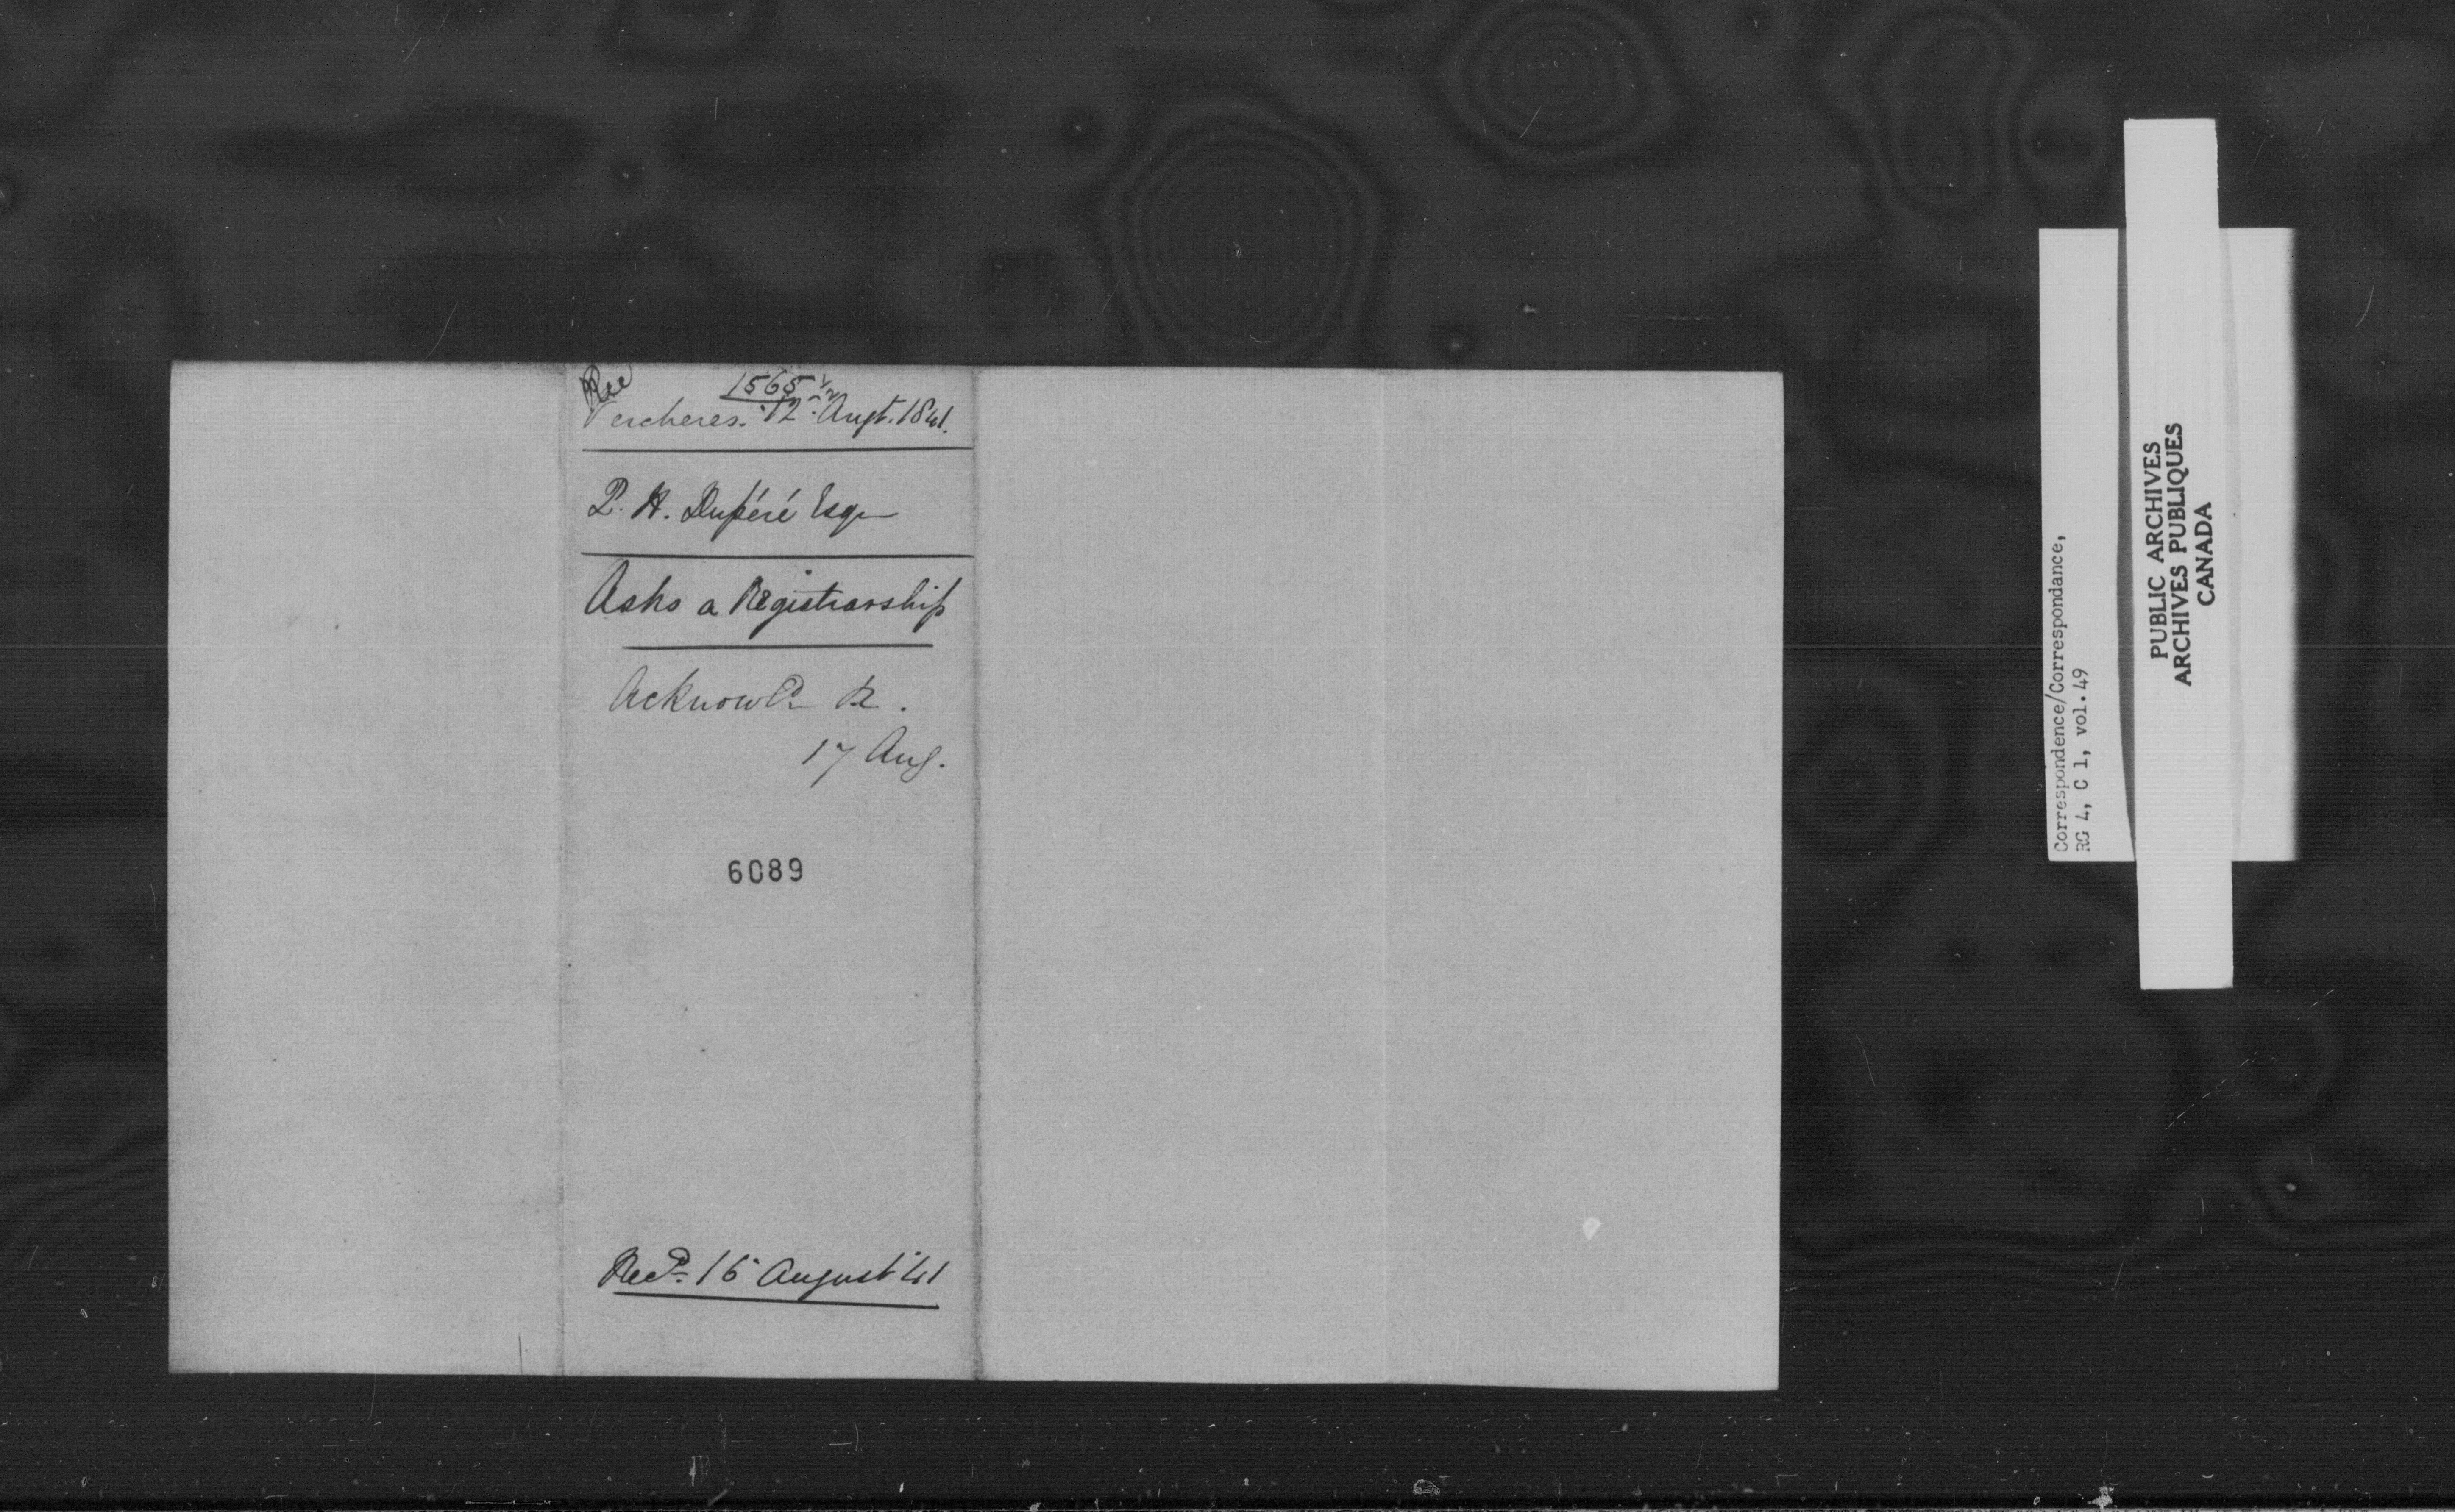 Rec
1565 1/2
Vercheres. 12 Augt. 1841.
P. H. Dupéré Esqr
Asks a Registrarship
Acknowd R.
17 Aug.
6089
Recd 16 August 41
Correspondence/Correspondance,
RG 4, C 1, vol. 49
PUBLIC ARCHIVES
ARCHIVES PUBLIQUES
CANADA